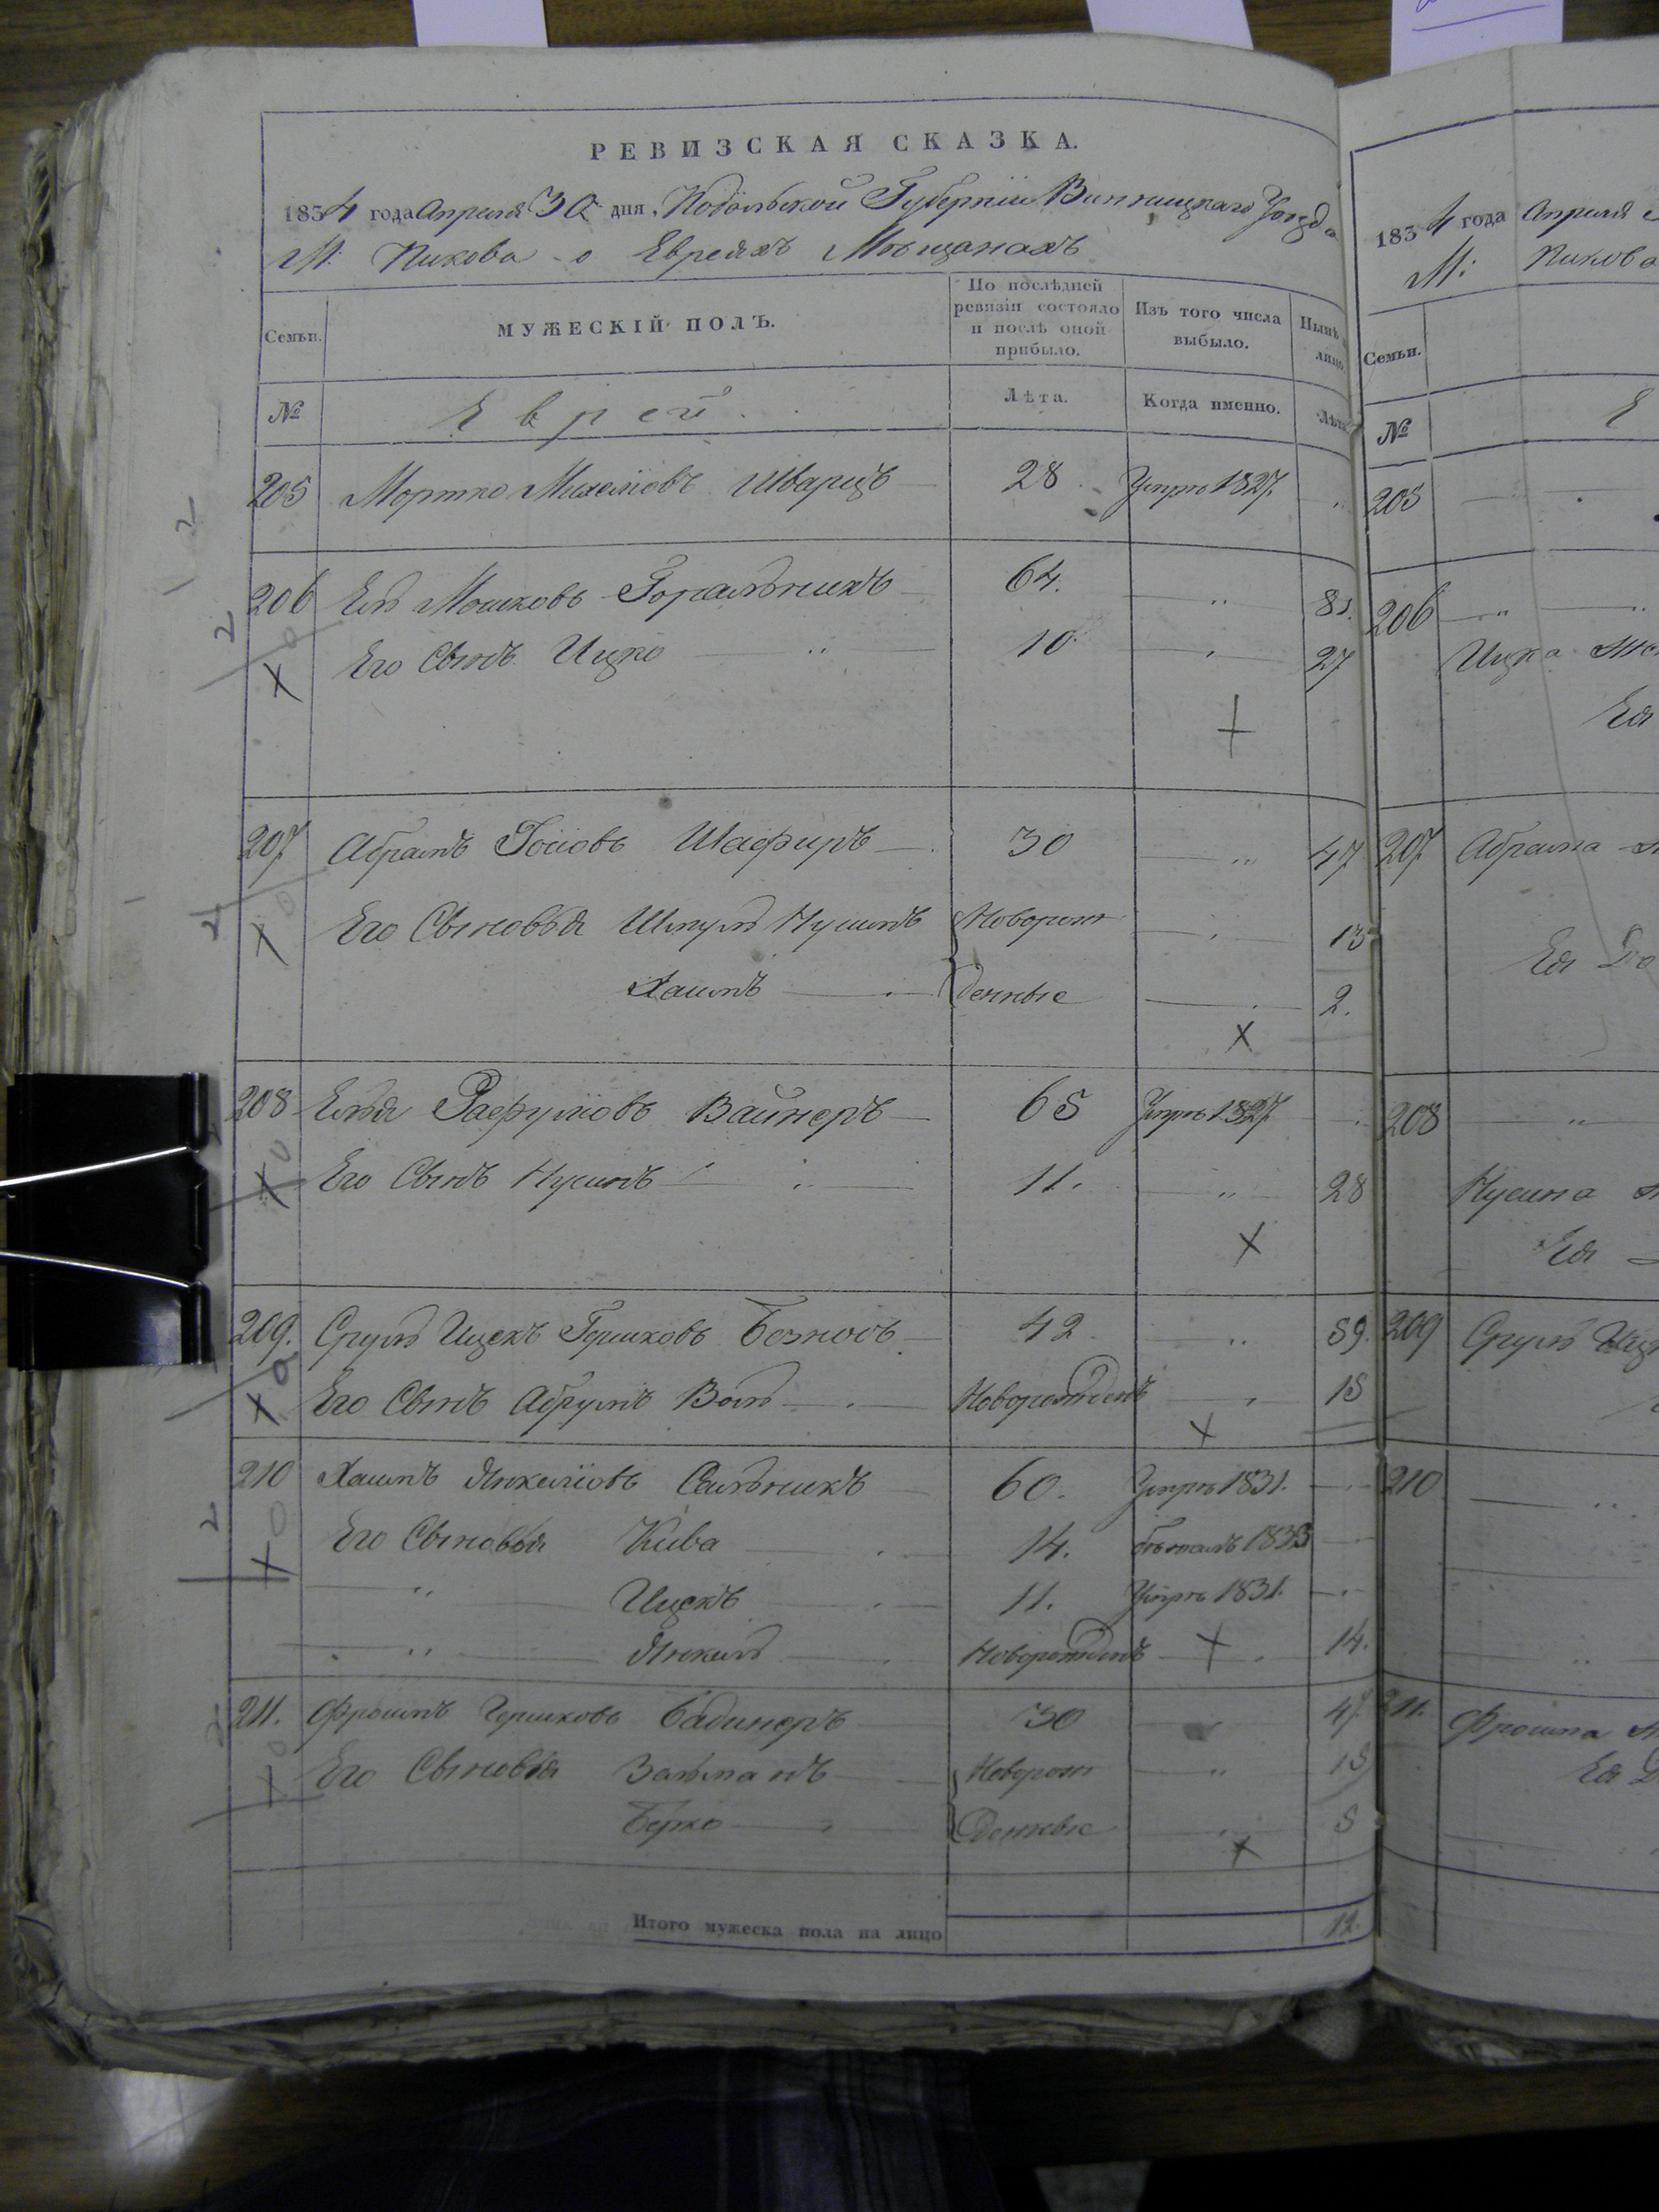 РЕВИЗСКАЯ СКАЗКА.
1834 года Апреля 30 дня, Подольской Губернїи Винницкаго Уезда
М: Пикова о Евреяхъ Мѣщанахъ
Семьи. МУЖЕСКІЙ ПОЛЪ. По послѣдней ревизіи состояло и послѣ оной прибыло. Изъ того числа выбыло. Нынѣ лицо
№ Еврей Лѣта. Когда именно. Лѣта
205 Мортко Михелїовъ Шварцъ 28. Умре 1827.
206 Ель Мошковъ Горальникъ 64. 81.
Его Сынъ Ицко 10. 27
207 Абрамъ Іосіовъ Шафиръ 30 47
Его Сыновья Шмуль Нусинъ Новорож 13
Хаимъ денные 2.
208 Елья Рафуліовъ Вайнеръ 65 Умре 1827
Его Сынъ Нусинъ 11. 28
209. Сруль Ицекъ Гершковъ Безносъ 42 59.
Его Сынъ Абрумъ Волъ Новорожденъ 15
210 Хаимъ Янкеліовъ Сальникъ 60. Умре 1831.
Его Сыновья Кива 14. бежалъ 1833
Ицекъ 11. Умре 1831.
Янкель Новорожденъ 14.
211. Фроимъ Гершковъ Бадинеръ 30 47
Его Сыновья Зальманъ Новорож 15
Берко денные 5
Итого мужеска пола на лицо 12.
1834 года Апреля
М: Пикова
Семьи.
№ Е
205
206
Ицка
Ея
207 Абрама
Ея До
208
Нусина
Ея
209 Сруля Ицк
210
211. Фроима
Ея Д